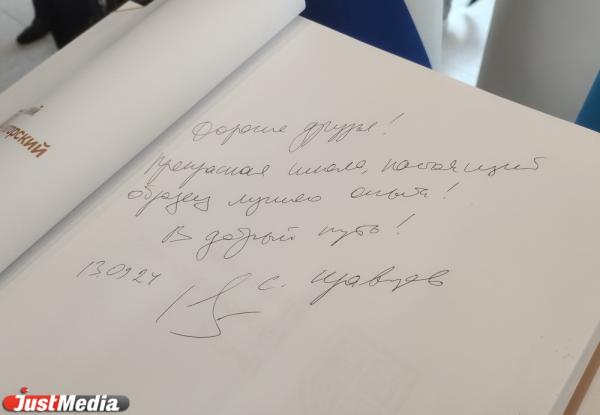 горский
Дорогие друзья!
Прекрасная школа, настоящий
образец лучшего опыта!
В добрый путь!
13.09.24
С. Кравцов
JustMedia